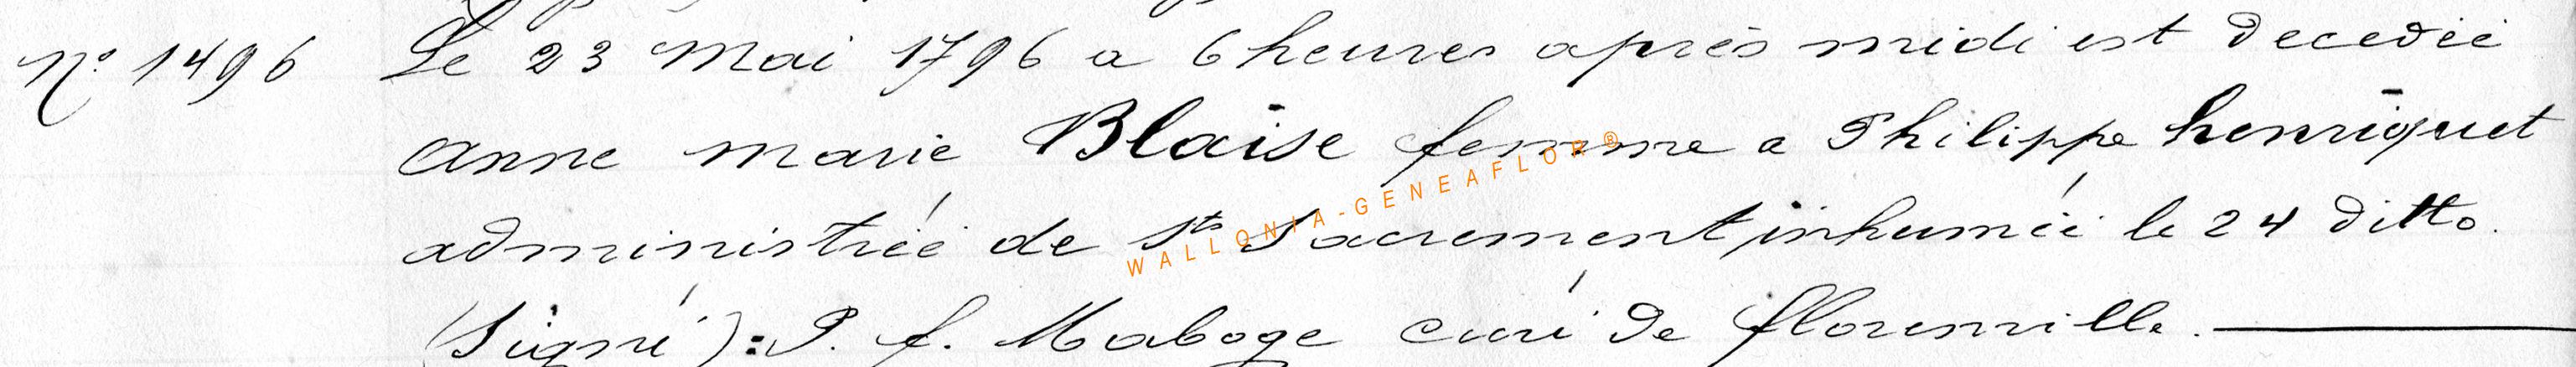 N° 1496 Le 23 Mai 1796 a 6 heures après midi est decedée
anne marie Blaise femme a Philippe henriquet
administrée de Sts Sacrement, inhumée le 24 ditto.
(Signé): P. f. Maboge curé de florenville.
WALLONIA-GENEAFLOR®